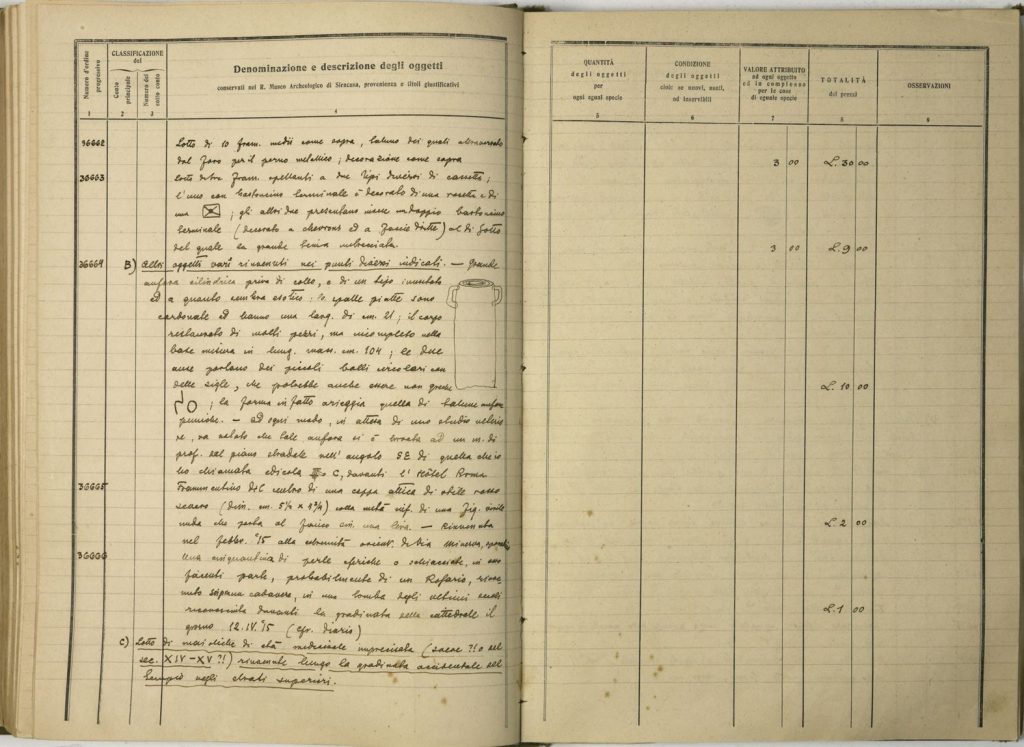 Numero d'ordine progressivo
CLASSIFICAZIONE del
Conto principale
Numero del sotto conto
Denominazione e descrizione degli oggetti
conservati nel R. Museo Archeologico di Siracusa, provenienza e titoli giustificativi
1 2 3 4
QUANTITÀ
degli oggetti
per
ogni egual specie
5
CONDIZIONE
degli oggetti
cioè: se nuovi, usati,
od inservibili
6
VALORE ATTRIBUITO
ad ogni oggetto
ed in complesso
per le cose
di eguale specie
7
TOTALITÀ
dei prezzi
8
OSSERVAZIONI
9
36662 Lotto di 10 fram. medii come sopra, taluno dei quali attraversato
dal foro per il perno metallico; decorazione come sopra 3 00 L. 30 00
36663 Lotto di tre fram. spettanti a due tipi diversi di cassetta;
l'uno con bastoncino terminale è decorato di una rosetta e di
una ; gli altri due presentano bastoncino
terminale (decorato a chevrons ed a fascie diritte) al di sotto
del quale la grande 3 00 L. 9 00
36664 B) Altri oggetti varî rinvenuti nei punti diversi indicati. — Grande
anfora cilindrica priva di collo, e di un tipo inusitato
ed a quanto sembra esotico. Le spalle piatte sono
ed hanno una larg. di cm. 21; il corpo
restaurato di molti pezzi, ma incompleto nella
base misura in lung. mass. cm. 104; le due
anse portano dei piccoli bolli circolari con
delle sigle, che potrebbe anche essere non greche L. 10 00
; la forma infatto arieggia quella di talune anfore
puniche. — Ad ogni modo, in attesa di uno studio
va notato che tale anfora si è trovata ad un m. di
prof. dal piano stradale nell'angolo SE di quella che io
ho chiamata edicola C, davanti l'Hôtel Roma.
36665 Frammentino del centro di una coppa attica di stile rosso
severo (dim. cm. 5½ x 4¾) colla metà inf. di una fig. virile
nuda che porta al fianco una lira. — Rinvenuta L. 2 00
nel febbr. '15 alla estremità orient. di Via Minerva,
36666 Una cinquantina di perle sferiche o schiacciate, in osso
facenti parte, probabilmente di un Rosario,
cadavere, in una tomba degli ultimi secoli
riconosciuta davanti la gradinata della cattedrale il L. 1 00
giorno 12.IV.'15 (cfr. diario)
C) Lotto di maioliche di età medioevale imprecisata (sarac ?! o del
sec. XIV-XV ?!) rinvenute lungo la gradinata occidentale del
tempio negli strati superiori.